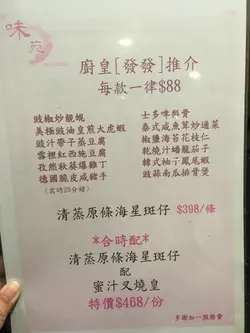 味苑
廚皇[發發]推介
每款一律$88
豉椒炒蜆蜆
美極豉油皇煎大虎蝦
豉汁帶子蒸豆腐
雲裡紅西施豆腐
孜然秋葵爆雞丁
德國脆皮咸豬手
(需時20分鐘)
士多啤梨骨
泰式咸魚茸炒通菜
椒鹽海苔花枝仁
乾燒汁蟠龍茄子
韓式柚子鳳尾蝦
豉蒜南瓜排骨煲
清蒸原條海星斑仔 $398/條
*合時配*
清蒸原條海星斑仔
配
蜜汁叉燒皇
特價$468/份
多謝加一服務費